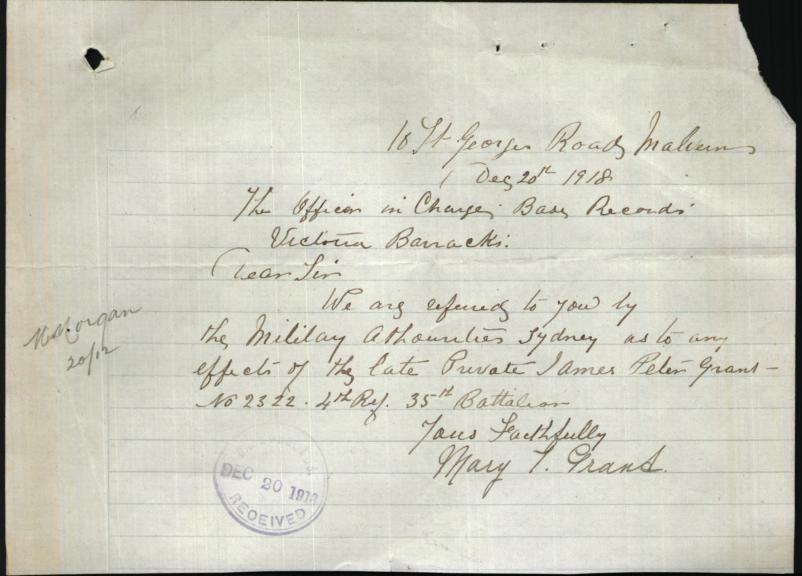 18 St Georges Road, Malvern
Dec 20th 1918
The Officer in Charge, Base Records
Victoria Barracks.
Dear Sir
We are referred to you by
the Mililay Athourities Sydney as to any
effects of the late Private James Peter Grant –
No 2322. 4th Ref. 35th Battalion
Yours Faithfully
Mary J. Grant.
Morgan
20/12
DEC 20 1918
RECEIVED